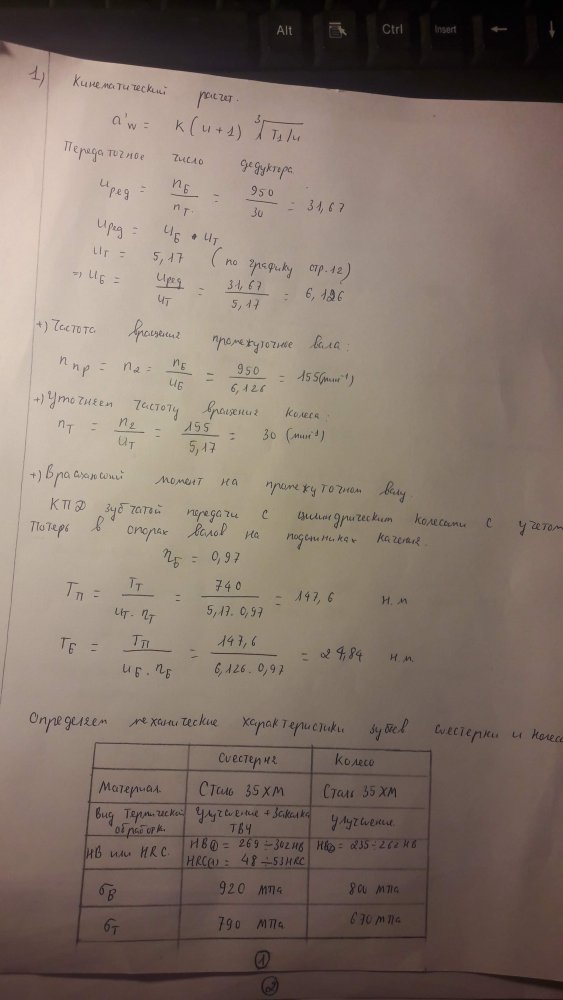 Alt
Ctrl
Insert
1) Кинематический расчет.
a'w = K(u+1) ∛T1/u
Передаточное число дедуктора
uред = nБ/nT. = 950/30 = 31,67
uред = uБ • uT
uT = 5,17 (по графику стр.12)
=> uБ = uред/uT = 31,67/5,17 = 6,126
+) Частота вращения промежуточное вала:
nпр = n2 = nБ/uБ = 950/6,126 = 155(мин⁻¹)
+) Уточняем частоту вращения колеса:
nT = n2/uT = 155/5,17 = 30 (мин⁻¹)
+) Вращающий момент на промежуточном валу.
КПД зубчатой передачи с цилиндрическим колесами с учетом
Потерь в опорах валов на подшниках качение.
ηБ = 0,97
TП = TT/uT. ηT = 740/5,17. 0,97 = 147,6 н.м
TБ = TП/uБ. ηБ = 147,6/6,126. 0,97 = 24,84 н.м
Определяем механические характеристики зубьев шестерни и колеса
Шестерня Колесо
Материал Сталь 35ХМ Сталь 35ХМ
Вид Термической обработк. Улучшение + Закалка ТВЧ Улучшение
HB или HRC. HB(1) = 269÷302HB HB(2) = 235÷262 HB
HRC(1) = 48÷53HRC
σВ 920 мпа 800 мпа
σТ 790 мпа 670 мпа
1
2